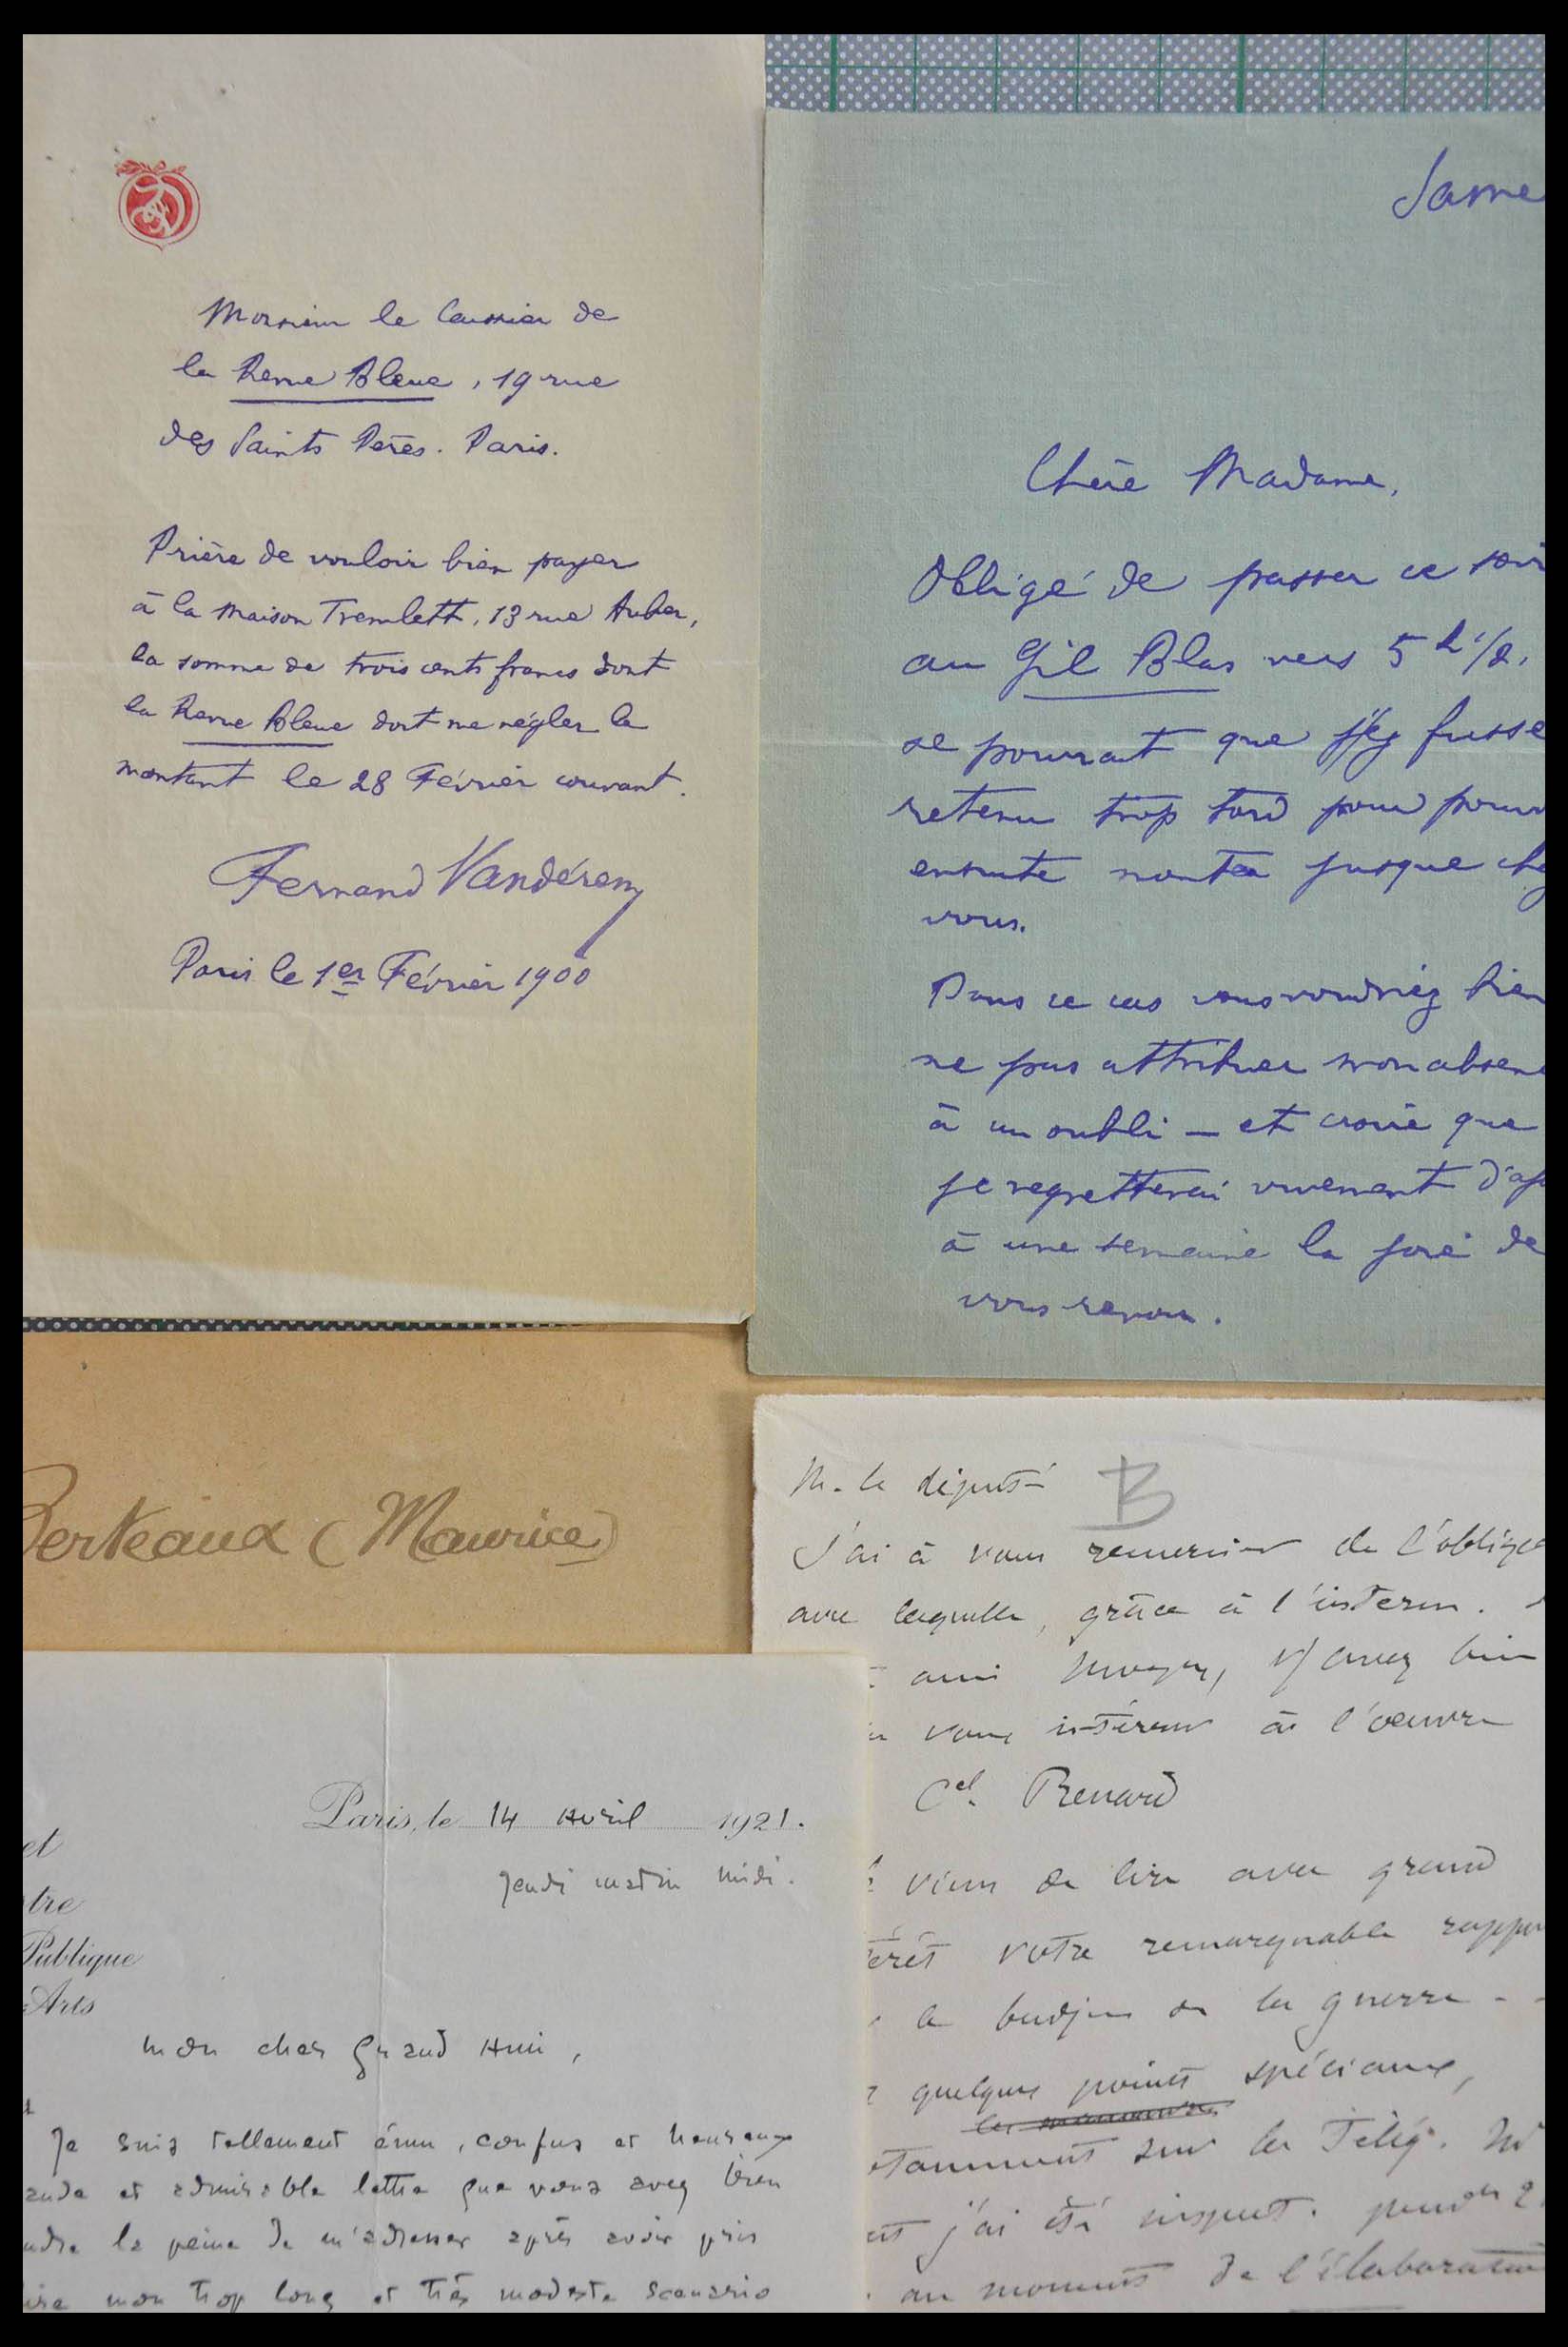 Monsieur le Caissier de
la Revue Bleue, 19 rue
des Saints Pères. Paris.
Prière de vouloir bien payer
à la maison Tremlett, 13 rue Auber,
la somme de trois cents francs dont
la Revue Bleue doit me régler le
montant le 28 Février courant.
Fernand Vandérem
Paris le 1er Février 1900
Same
Chère Madame,
Obligé de passer ce soir
au Gil Blas vers 5 h 1/2,
se pourrait que j'y fusse
retenu trop tard pour pouv
ensuite monter jusque che
vous.
Dans ce cas vous voudriez bien
ne pas attribuer mon absen
à un oubli — et croire que
je regretterai vivement d'aj
à une semaine la joie de
vous revoir.
Berteaux (Maurice)
M. le député B
J'ai à vous remercier de l'oblige
avec laquelle, grâce à l'interm.
ami v/ avez bien
vous intéresser à l'oeuvre
Cel. Renard
viens de lire avec grand
érêt votre remarquable rappo
le budget de la guerre - -
quelques points spéciaux,
tamment sur la Télég.
j'ai été inspect. pend
au moment de l'élaboration
et
tre
Publique
Arts
Paris, le 14 Avril 1921.
Jeudi matin midi.
mon cher Grand Ami,
Je suis tellement ému, confus et heureux
ande et admirable lettre que vous avez bien
ndre la peine de m'adresser après avoir pris
ire mon trop long et très modeste scenario